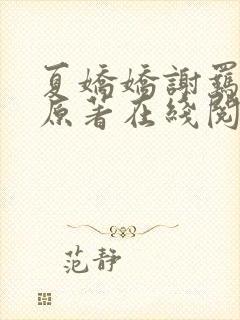 夏嬌嬌謝羈
原著在綫閱
范靜